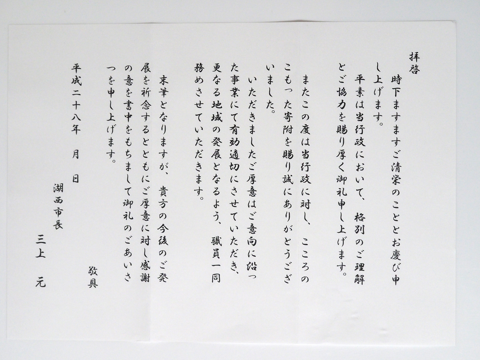 拝啓
時下ますますご清栄のこととお慶び申
し上げます。
平素は当行政において、格別のご理解
とご協力を賜り厚く御礼申し上げます。
またこの度は当行政に対し、こころの
こもった寄附を賜り誠にありがとうござ
いました。
いただきましたご厚意はご意向に沿っ
た事業にて有効適切にさせていただき、
更なる地域の発展となるよう、職員一同
務めさせていただきます。
末筆となりますが、貴方の今後のご発
展を祈念するとともにご厚意に対し感謝
の意を書中をもちまして御礼のごあいさ
つを申し上げます。
敬具
平成二十八年　月　日
湖西市長
三上　元